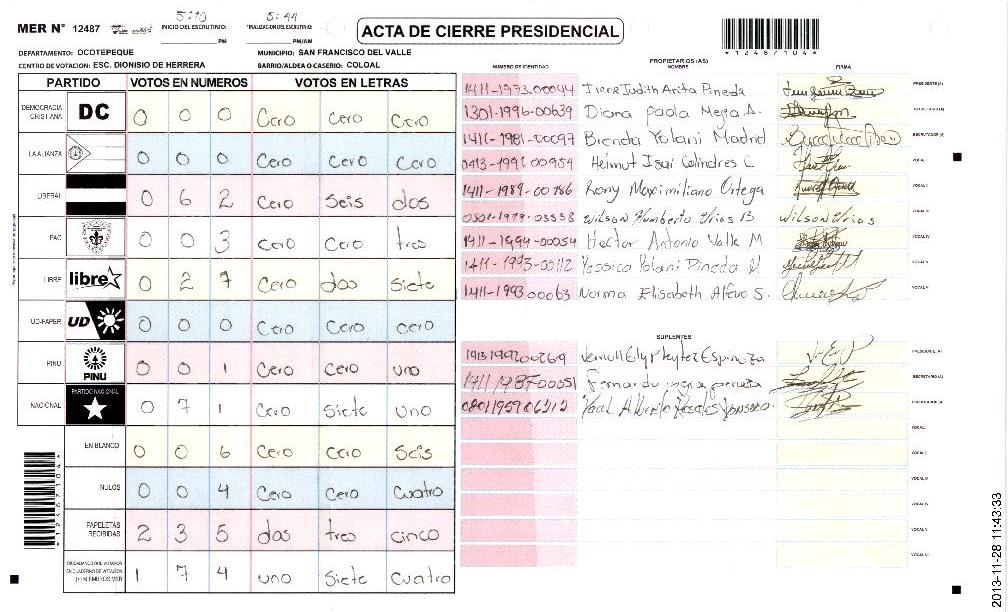 MER N° 12487
5:10
INICIO DEL ESCRUTINIO:
PM
5:44
FINALIZACION DEL ESCRUTINIO:
PM/AM
ACTA DE CIERRE PRESIDENCIAL
*12487104*
DEPARTAMENTO: OCOTEPEQUE
MUNICIPIO: SAN FRANCISCO DEL VALLE
CENTRO DE VOTACION: ESC. DIONISIO DE HERRERA
BARRIO/ALDEA O CASERIO: COLOAL
PARTIDO VOTOS EN NUMEROS VOTOS EN LETRAS
DEMOCRACIA CRISTIANA DC 0 0 0 Cero cero Cero
LA ALIANZA 0 0 0 Cero Cero Cero
LIBERAL 0 6 2 Cero Seis dos
PAC 0 0 3 cero Cero tres
LIBRE libre 0 2 7 Cero dos Siete
UD-FAPER UD 0 0 0 Cero Cero cero
PINU PINU 0 0 1 Cero Cero uno
NACIONAL PARTIDO NACIONAL 0 7 1 Cero Siete Uno
EN BLANCO 0 0 6 Cero Cero Seis
NULOS 0 0 4 Cero Cero Cuatro
PAPELETAS RECIBIDAS 2 3 5 dos tres cinco
CIUDADANOS QUE VOTARON EN CUADERNO DE VOTACION (+) MIEMBROS MER 1 7 4 uno Siete Cuatro
PROPIETARIOS (AS)
NUMERO DE IDENTIDAD NOMBRE FIRMA
1411-1973-00044 Irene Judith Arita Pineda PRESIDENTE (A)
1301-1996-00639 Diana Paola Mejia A. SECRETARIO (A)
1411-1981-00097 Brenda Yolani Madrid ESCRUTADOR (A)
0413-1991-00954 Helmut Isai Colindres C VOCAL I
1411-1989-00186 Rony Maximiliano Ortega VOCAL II
0501-1979-03558 Wilson Humberto Urias B Wilson Urias VOCAL III
1411-1994-00054 Hector Antonio Valle M VOCAL IV
1411-1993-00112 Yessica Yolani Pineda M. VOCAL V
1411-1993 00063 Norma Elisabeth Alfaro S. VOCAL VI
SUPLENTES
PRESIDENTE (A)
SECRETARIO (A)
ESCRUTADOR (A)
VOCAL I
VOCAL II
VOCAL III
VOCAL IV
VOCAL V
VOCAL VI
*12487104*
2013-11-28 11:43:33